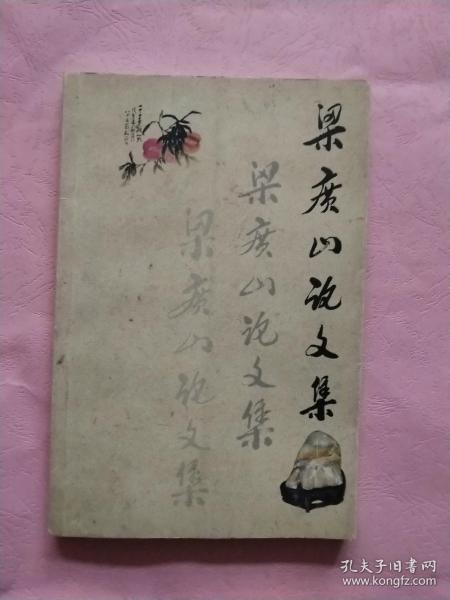 梁广山论文集
梁广山论文集
梁广山论文集
孔夫子旧书网
www.kongfz.com